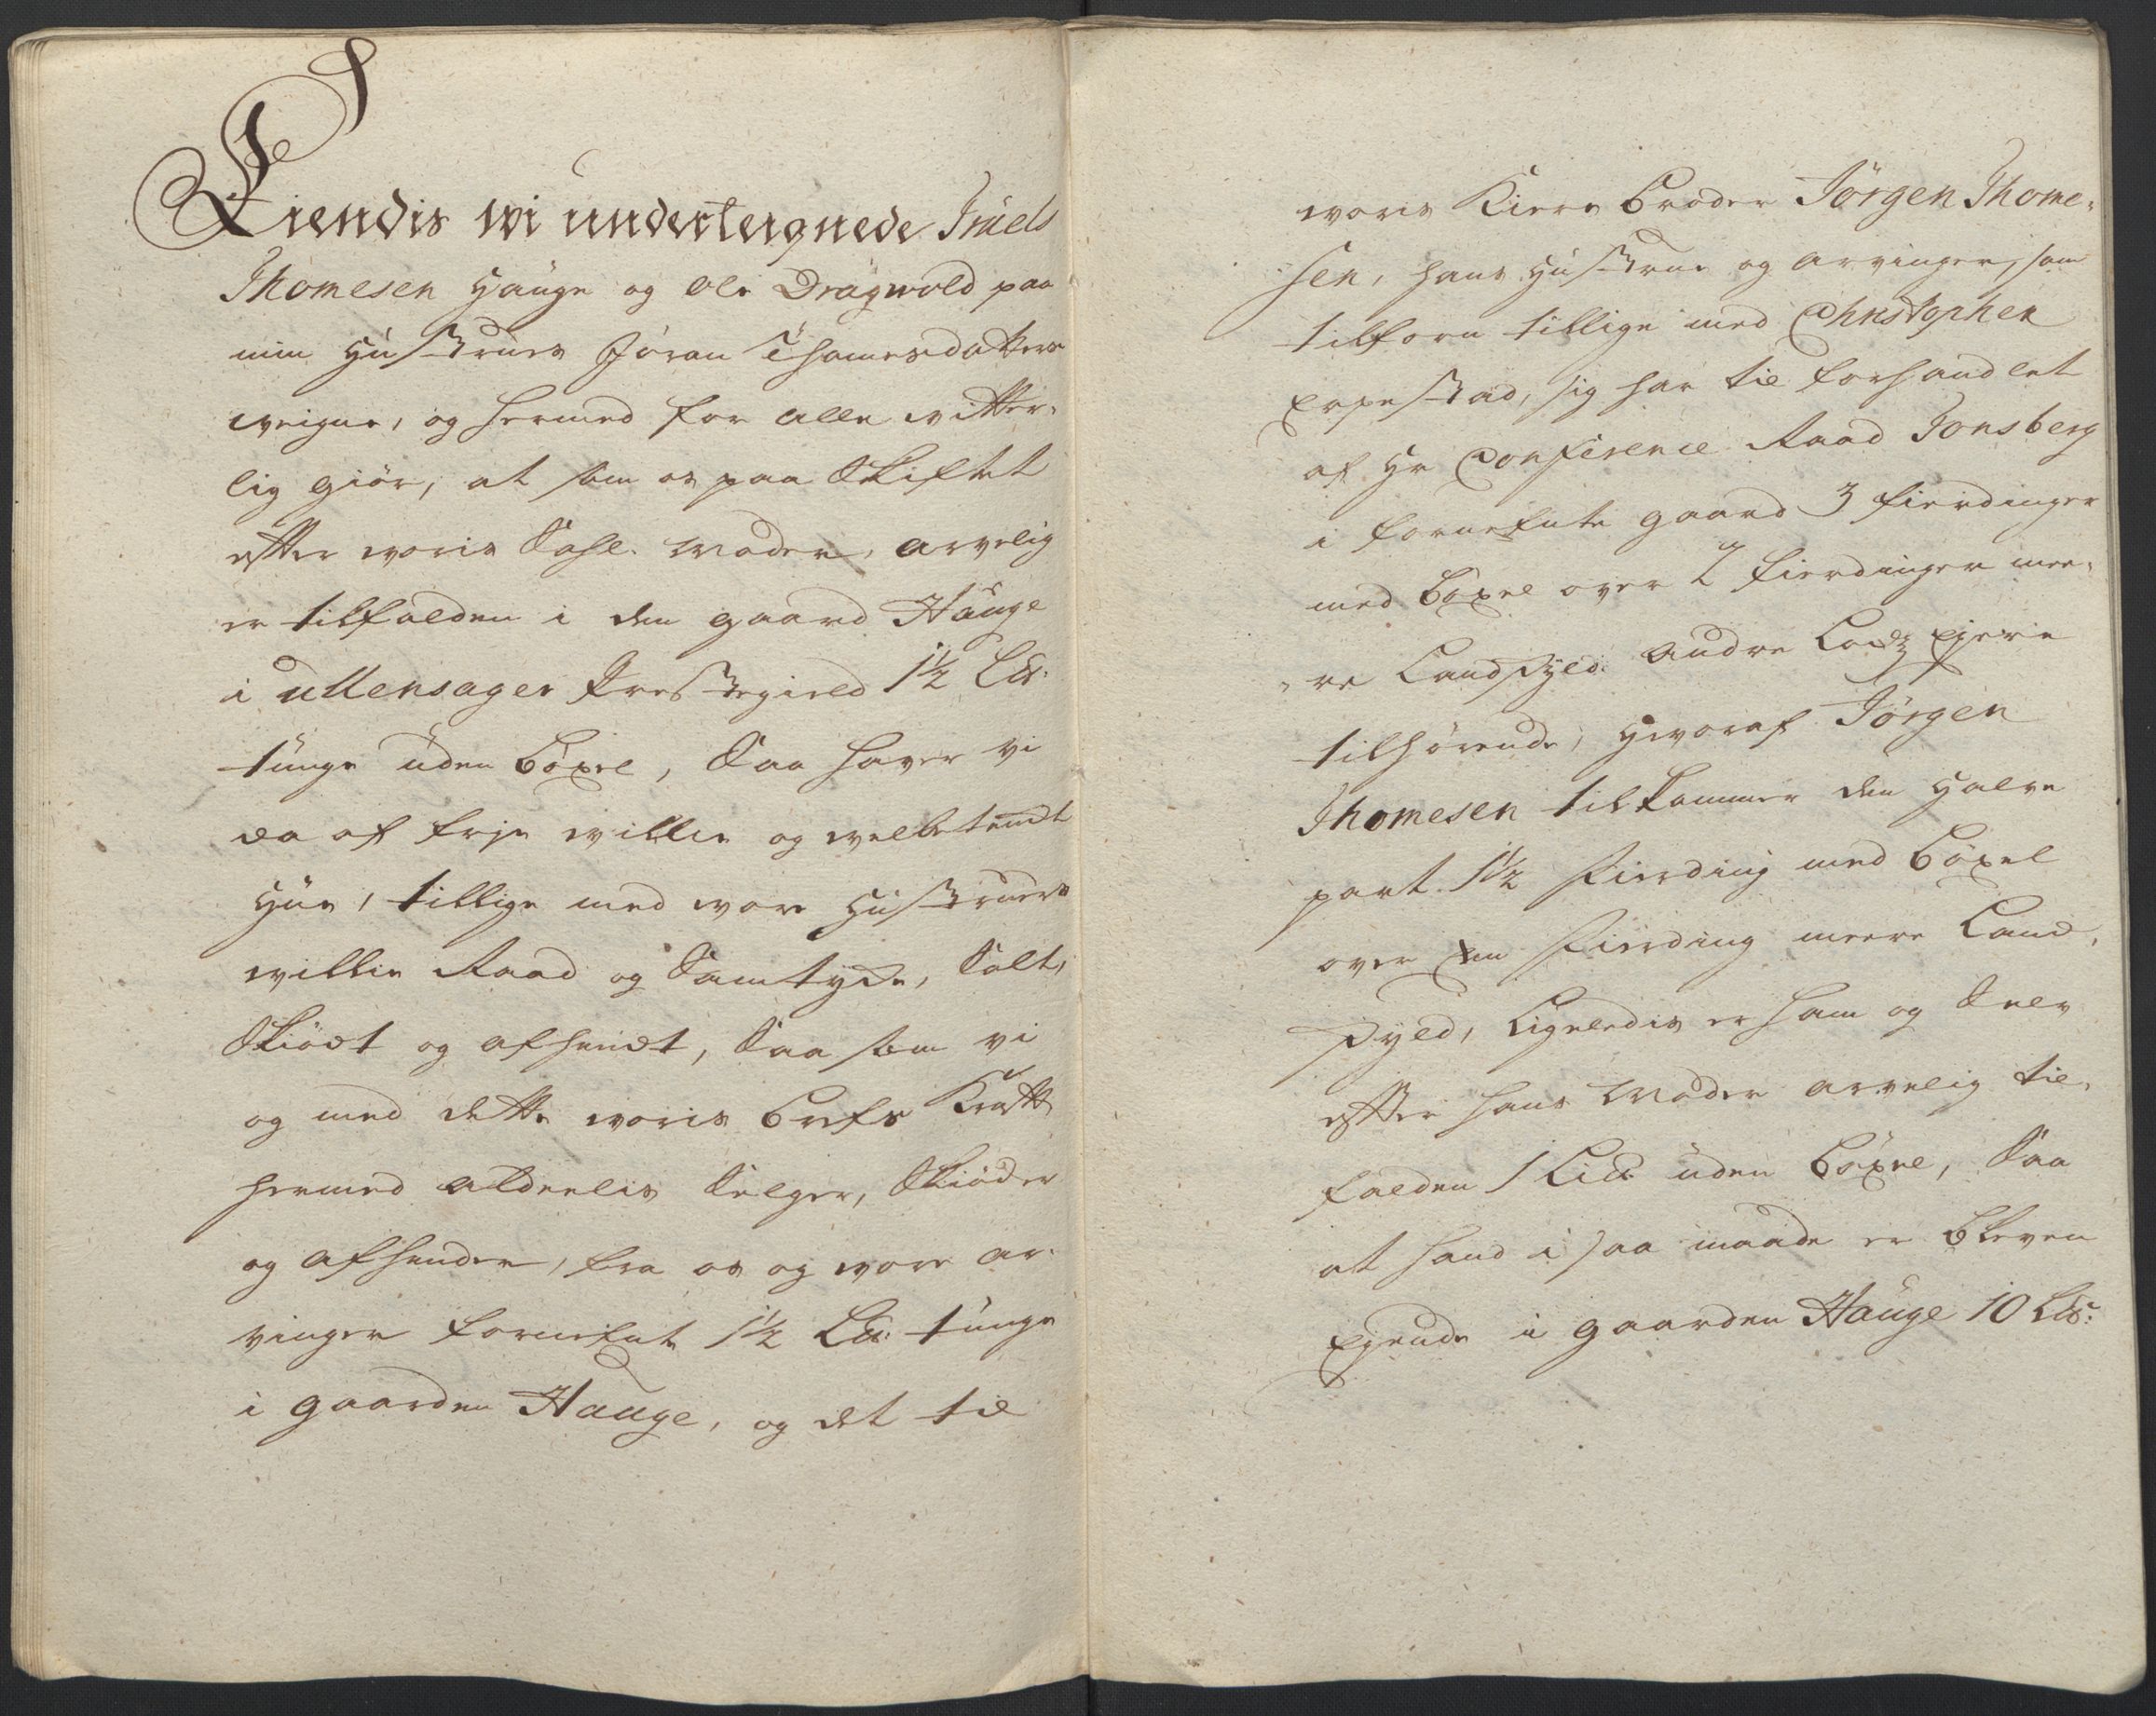 Kiendis wi undertegnede Truels
Thomesen Hauge og Ole Dragwold paa
min Hustrues Joran Thomesdatters
weigne, og hermed for alle witter-
lig giör, at som os paa Skiftet
effter woris Sahl. Moder, arvelig
er tilfalden i den gaard Hauge
i Ullensager Prestegield 1½ Lis:
tunge uden böxel, Saa haver vi
da af frje willie og welbetencht
Hue, tillige med wore Hustruers
willie Raad og Samtyche, Solt,
Skiödt og afhendt, Saa som vi
og med dette woris brefs Krafft
hermed aldeelis Selger, Skiöder
og afhender, fra os og wore ar-
vinger fornefnt 1½ Lis: tunge
i gaarden Hauge, og det til
woris Kiere broder Jörgen Thome-
sen, hans Hustrue og arvinger, som
tilforn tillige med Christopher
Erpestad, sig har til forhandlet
af Hr Conference Raad Tonsberg
i fornefnte gaard 3 fierdinger
med böxel over 2 fierdinger mee-
re Landskyld andre Lods Ejere
tilhörende, Hworaf Jörgen
Thomesen tilkommer den halve
part 1½ Fierding med böxel
over en Fierding meere Land-
skyld, Ligeledis er ham og Selv
effter hans Moder arvelig til-
falden 1 Lis: uden böxel, Saa
at hand i saa maade er bleven
Ejende i gaarden Hauge 10 Lis: